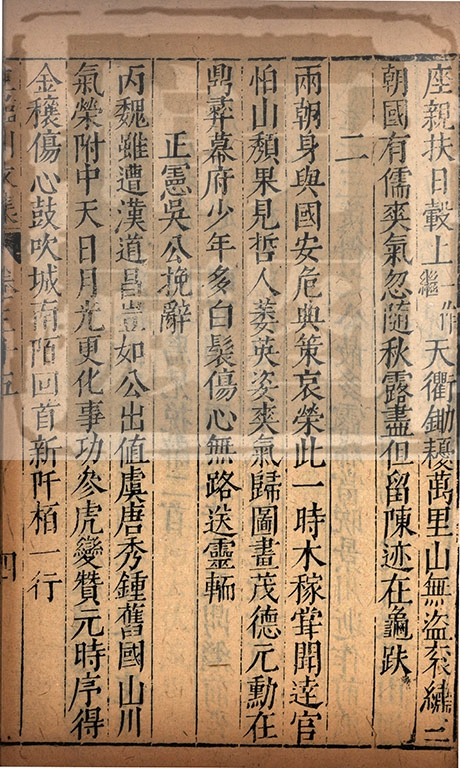 座親扶日轂上天衢鋤耰萬里山無盜袞繡二
朝國有儒爽氣忽隨秋露盡但留陳迹在龜趺
二
兩朝身與國安危典策哀榮此一時木稼甞聞逹官
怕山頹果見哲人萎英姿爽氣歸圖畫茂德元勳在
鼎彛幕府少年多白髮傷心無路送靈輀
正憲吳公挽辭
丙魏雖遭漢道昌豈如公出值虞唐秀鍾舊國山川
氣榮附中天日月光更化事功參虎變贊元時序得
金穰傷心鼓吹城南陌回首新阡栢一行
卷三十五
四